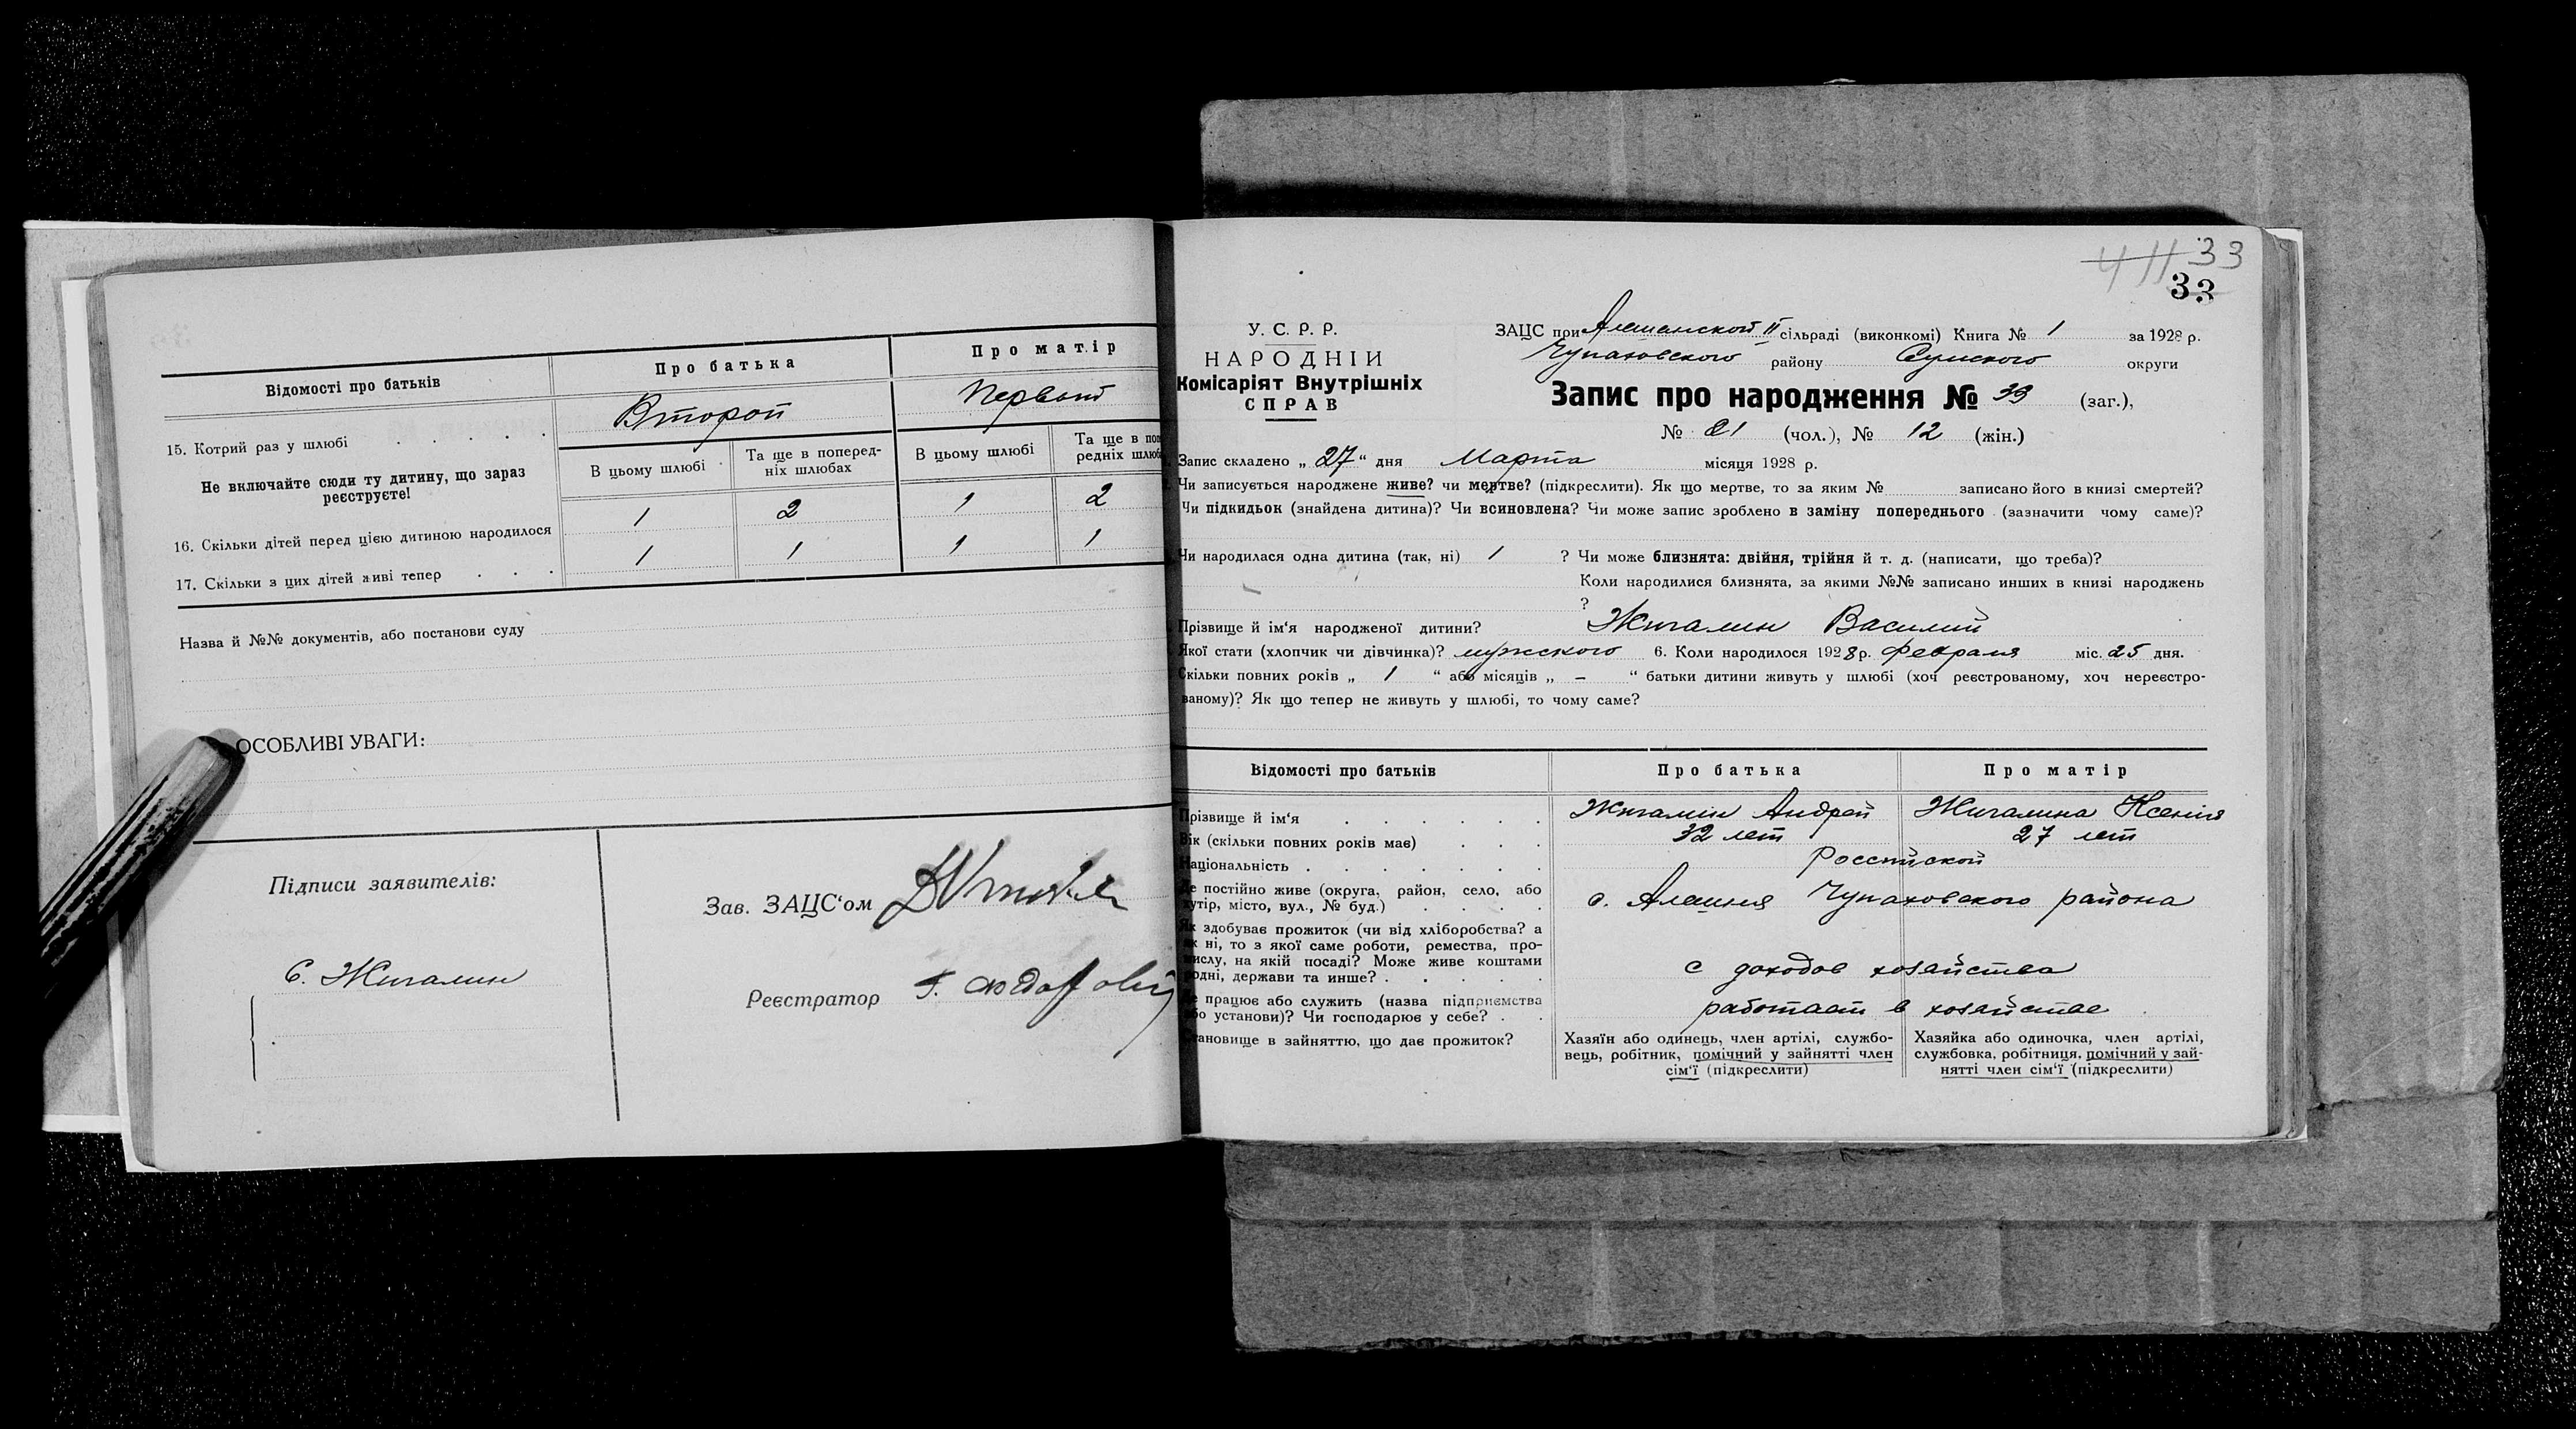 Відомості про батьків
Про батька
Про матір
15. Котрий раз у шлюбі . . . . .
Второй
Первый
Не включайте сюди ту дитину, що зараз
реєструєте!
В цьому шлюбі
Та ще в поперед-
ніх шлюбах
В цьому шлюбі
Та ще в поп
редніх шлюб
16. Скільки дітей перед цією дитиною народилося
1 2 1 2
17. Скільки з цих дітей живі тепер . . .
1 1 1 1
Назва й №№ документів, або постанови суду
ОСОБЛИВІ УВАГИ:
Підписи заявителів:
С. Жигалин
Зав. ЗАЦС'ом
Реєстратор
41 33
33
У. С. Р. Р.
НАРОДНІЙ
Комісаріят Внутрішніх
СПРАВ
ЗАЦС при Алешанской II сільраді (виконкомі) Книга № 1 за 1928 р.
Чупаховского району Сумского округи
Запис про народження № 33 (заг.),
№ 21 (чол.), № 12 (жін.)
Запис складено „ 27 “ дня Марта місяця 1928 р.
Чи записується народжене живе? чи мертве? (підкреслити). Як що мертве, то за яким № записано його в книзі смертей?
Чи підкидьок (знайдена дитина)? Чи всиновлена? Чи може запис зроблено в заміну попереднього (зазначити чому саме)?
Чи народилася одна дитина (так, ні) 1 ? Чи може близнята: двійня, трійня й т. д. (написати, що треба)?
Коли народилися близнята, за якими №№ записано инших в книзі народжень
?
Прізвище й ім'я народженої дитини? Жигалин Василий
Якої стати (хлопчик чи дівчинка)? мужского 6. Коли народилося 1928 р. февраля міс. 25 дня.
Скільки повних років „ 1 “ або місяців „ – “ батьки дитини живуть у шлюбі (хоч реєстрованому, хоч нереєстро-
ваному)? Як що тепер не живуть у шлюбі, то чому саме?
Відомості про батьків
Про батька
Про матір
Прізвище й ім'я . . . . . .
Жигалин Андрей
Жигалина Ксения
Вік (скільки повних років має) . . .
32 лет
27 лет
Національність . . . . . . .
Российской
Де постійно живе (округа, район, село, або
хутір, місто, вул., № буд.) . . . .
с. Алешня Чупаховского района
Як здобуває прожиток (чи від хліборобства? а
як ні, то з якої саме роботи, ремества, про-
мислу, на якій посаді? Може живе коштами
родні, держави та инше? . . . . .
с доходов хозайства
Де працює або служить (назва підприємства
або установи)? Чи господарює у себе? . .
работает в хозайстве
Становище в зайняттю, що дає прожиток?
Хазяїн або одинець, член артілі, службо-
вець, робітник, помічний у зайнятті член
сім'ї (підкреслити)
Хазяйка або одиночка, член артілі,
службовка, робітниця, помічний у зай-
нятті член сім'ї (підкреслити)